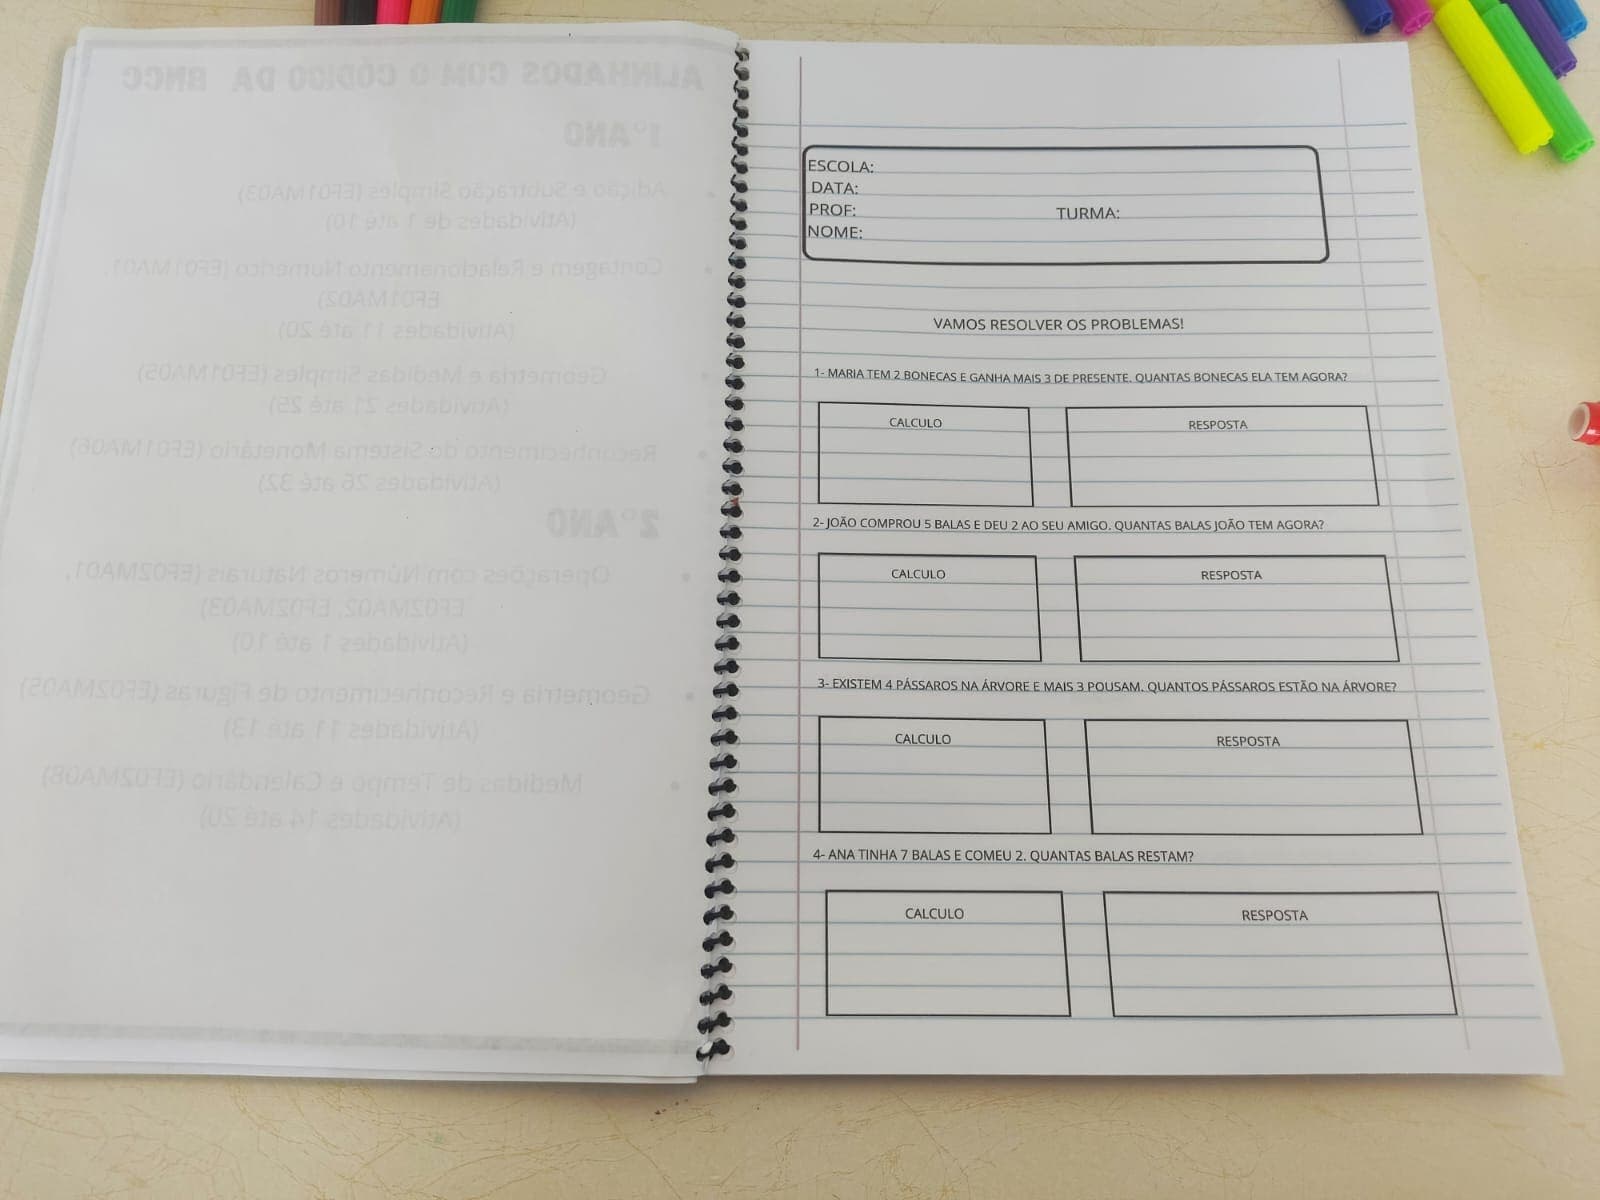 ALINHADOS COM O CÓDIGO DA BNCC
1º ANO
• Adição e Subtração Simples (EF01MA03)
(Atividades de 1 até 10)
• Contagem e Relacionamento Numérico (EF01MA01,
EF01MA02)
(Atividades 11 até 20)
• Geometria e Medidas Simples (EF01MA05)
(Atividades 21 até 25)
• Reconhecimento do Sistema Monetário (EF01MA06)
(Atividades 26 até 32)
2º ANO
• Operações com Números Naturais (EF02MA01,
EF02MA02, EF02MA03)
(Atividades 1 até 10)
• Geometria e Reconhecimento de Figuras (EF02MA05)
(Atividades 11 até 13)
• Medidas de Tempo e Calendário (EF02MA08)
(Atividades 14 até 20)
ESCOLA:
DATA:
PROF: TURMA:
NOME:
VAMOS RESOLVER OS PROBLEMAS!
1- MARIA TEM 2 BONECAS E GANHA MAIS 3 DE PRESENTE. QUANTAS BONECAS ELA TEM AGORA?
CALCULO RESPOSTA
2- JOÃO COMPROU 5 BALAS E DEU 2 AO SEU AMIGO. QUANTAS BALAS JOÃO TEM AGORA?
CALCULO RESPOSTA
3- EXISTEM 4 PÁSSAROS NA ÁRVORE E MAIS 3 POUSAM. QUANTOS PÁSSAROS ESTÃO NA ÁRVORE?
CALCULO RESPOSTA
4- ANA TINHA 7 BALAS E COMEU 2. QUANTAS BALAS RESTAM?
CALCULO RESPOSTA